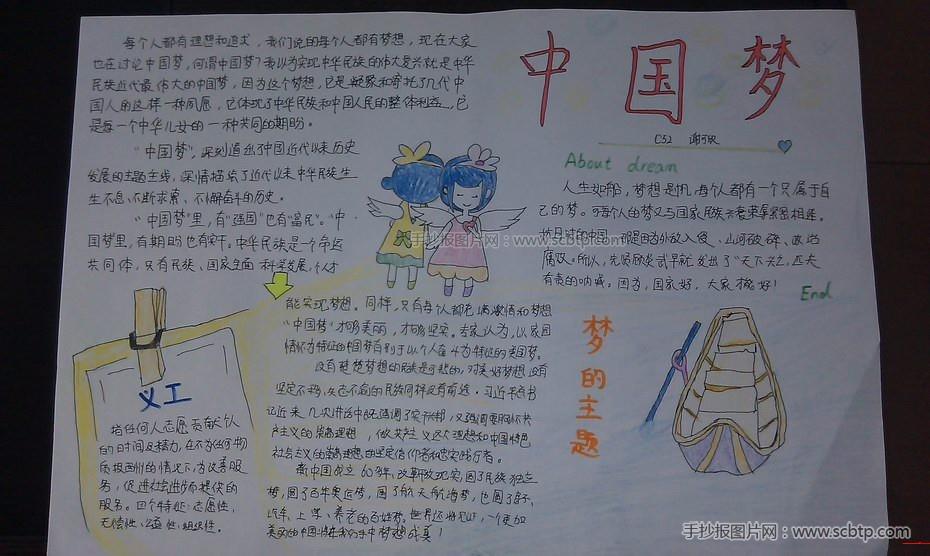 中国梦
C52 谢可欣
每个人都有理想和追求，我们说的每个人都有梦想，现在大家
也在讨论中国梦，何谓中国梦？我以为实现中华民族的伟大复兴就是中华
民族近代最伟大的中国梦，因为这个梦想，它是凝聚和寄托了几代中
国人的这样一种夙愿，它体现了中华民族和中国人民的整体利益，它
是每一个中华儿女的一种共同的期盼。
"中国梦"，深刻道出了中国近代以来历史
发展的主题主线，深情描绘了近代以来中华民族生
生不息、不断求索、不懈奋斗的历史。
"中国梦"里，有"强国"也有"富民"。"中
国梦"里，有期盼也有实干。中华民族是一个命运
共同体，只有民族、国家全面科学发展，个人才
能实现梦想。同样，只有每个人都充满激情和梦想
"中国梦"才够美丽，才够坚实。专家认为，以家国
情怀为特征的中国梦有别于以个人奋斗为特征的美国梦。
没有梦想的民族是可悲的，对美好梦想没有
坚定不移、矢志不渝的民族同样没有前途。习近平总书
记近来几次讲话中既强调了实干兴邦，又强调要胸怀共
产主义的崇高理想，做共产主义远大理想和中国特色
社会主义的崇高理想的坚定信仰者和忠实践行者。
新中国成立60多年，改革开放现实，圆了民族独立
梦，圆了百年奥运梦，圆了航天航海梦，也圆了房子、
汽车、上学、养老的百姓梦。世界还将见证，一个更加
美丽的中国将在我们手中梦想成真！
About dream
人生如船，梦想是帆，每个人都有一个只属于自
己的梦。可每个人的梦又与国家民族兴衰荣辱紧密相连。
旧时的中国，那是因为外敌入侵、山河破碎、政治
腐败。所以，先贤顾炎武早就发出了"天下兴亡，匹夫
有责的呐喊。因为，国家好，大家才能好！
End
梦的主题
义工
指任何人志愿贡献个人
的时间及精力，在不为任何物
质报酬的情况下，为改善服
务，促进社会进步而提供的
服务。四个特征：志愿性、
无偿性、公益性、组织性。
手抄报图片网：www.scbtp.com
手抄报图片网：www.scbtp.com